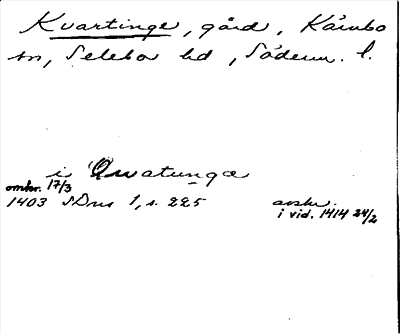 Kvartinge, gård, Kärnbo
sn, Selebo hd, Söderm. l.
i Quatunga
omkr. 17/3
1403 SDns 1, s. 225
avskr.
i vid. 1414 24/2